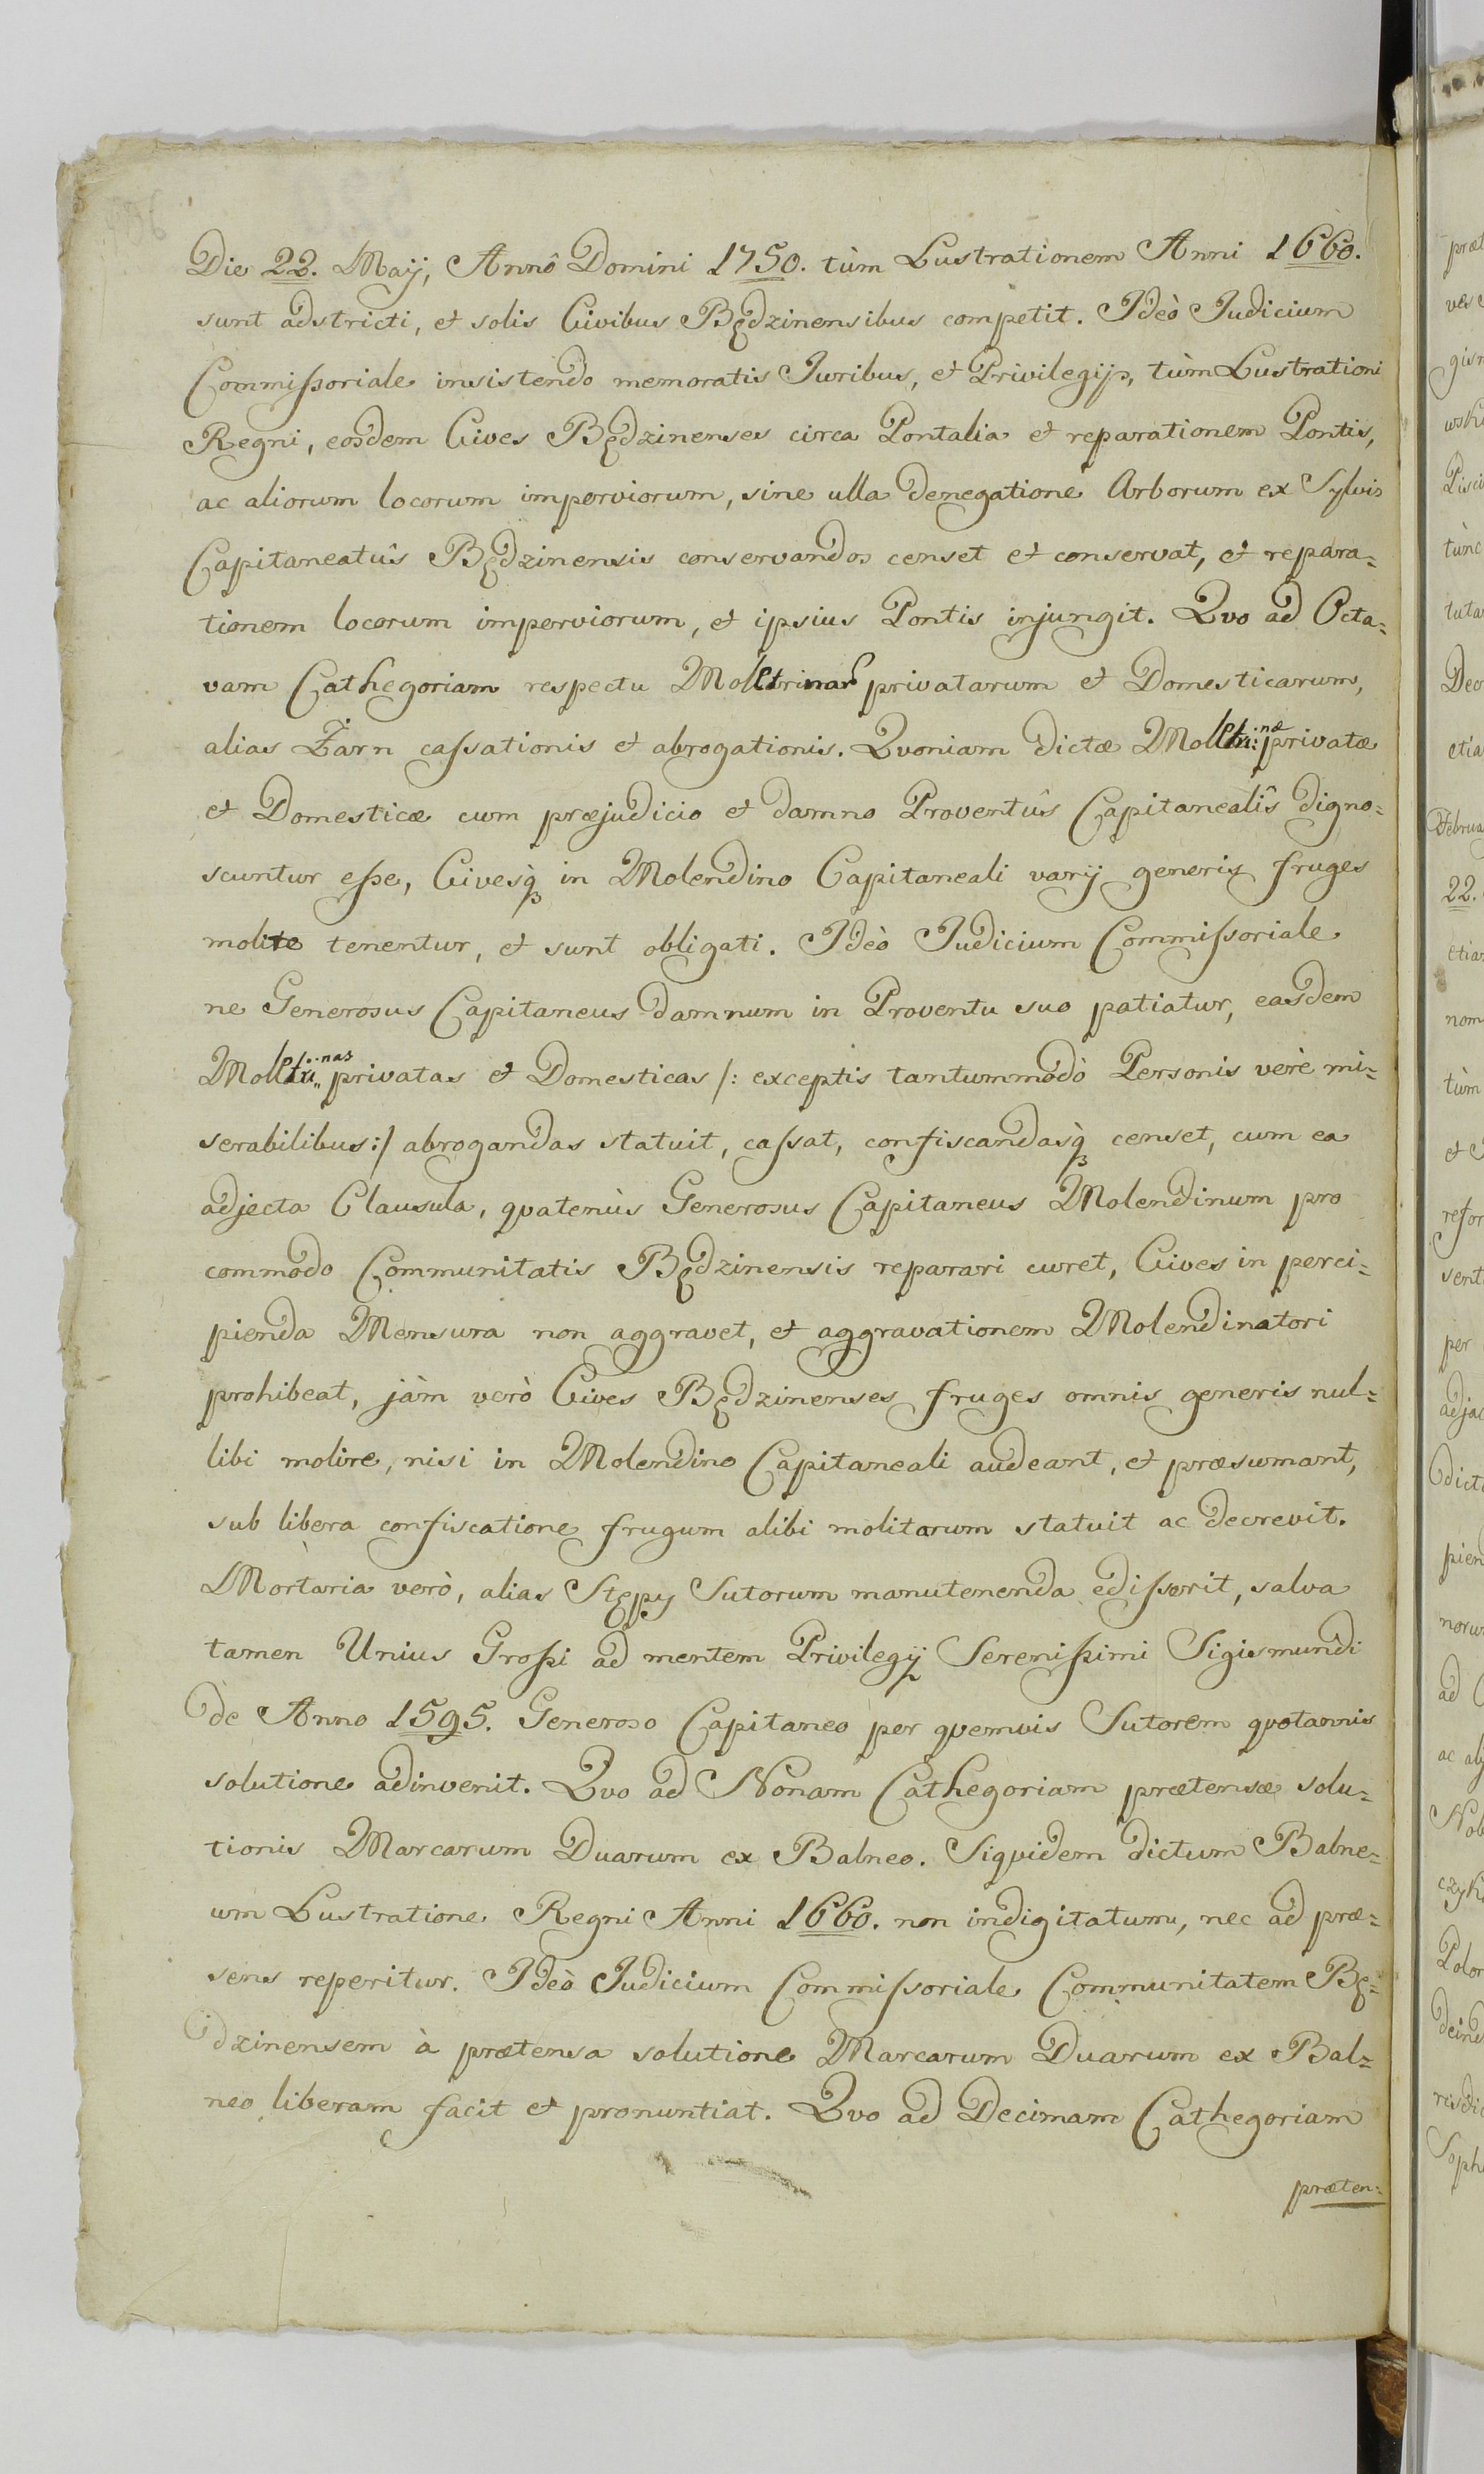 Die 22. Maÿ, Annô Domini 1750. tùm Lustrationem Anni 1660.
sunt adstricti, et solis Civibus Będzinensibus competit. Ideò Judicium
Commissoriale insistendo memoratis Juribus, et Privilegijs, tùm Lustrationi
Regni, eosdem Cives Będzinenses circa Pontalia et reparationem Pontis,
ac aliorum locorum imperviorum, sine ulla denegatione Arborum ex Sylvis
Capitaneatûs Będzinensis conservandos censet et conservat, et repara=
tionem locorum imperviorum, et ipsius Pontis injungit. Qvo ad Octa=
vam Cathegoriam respectu privatarum et Domesticarum,
alias Żarn cassationis et abrogationis. Qvoniam dictæ privatæ
et Domesticæ cum præjudicio et damno Proventûs Capitanealîs digno=
scuntur esse, Civesq́; in Molendino Capitaneali varij generis fruges
molite tenentur, et sunt obligati. Ideò Judicium Commissoriale
ne Generosus Capitaneus damnum in Proventu suo patiatur, easdem
privatas et Domesticas /: exceptis tantummodò Personis verè mi=
serabilibus:/ abrogandas statuit, cassat, confiscandasq́; censet, cum ea
adjecta Clausula, qvatenùs Generosus Capitaneus Molendinum pro
commodo Communitatis Będzinensis reparari curet, Cives in perci=
pienda Mensura non aggravet, et aggravationem Molendinatori
prohibeat, jàm verò Cives Będzinenses fruges omnis generis nul=
libi molire, nisi in Molendino Capitaneali audeant, et præsumant,
sub libera confiscatione frugum alibi molitarum statuit ac decrevit.
Mortaria verò, alias Stępy Sutorum manutenenda edisserit, salva
tamen Unius Grossi ad mentem Privilegij Serenissimi Sigismundi
de Anno 1595. Generoso Capitaneo per qvemvis Sutorem qvotannis
solutione adinvenit. Qvo ad Nonam Cathegoriam prætensæ solu=
tionis Marcarum Duarum ex Balneo. Siqvidem dictum Balne=
um Lustratione Regni Anni 1660. non indigitatum, nec ad præ=
sens reperitur. Ideò Judicium Commissoriale Communitatem Bę=
dzinensem à prætensa solutione Marcarum Duarum ex Bal=
neo liberam facit et pronuntiat. Qvo ad Decimam Cathegoriam
præten=